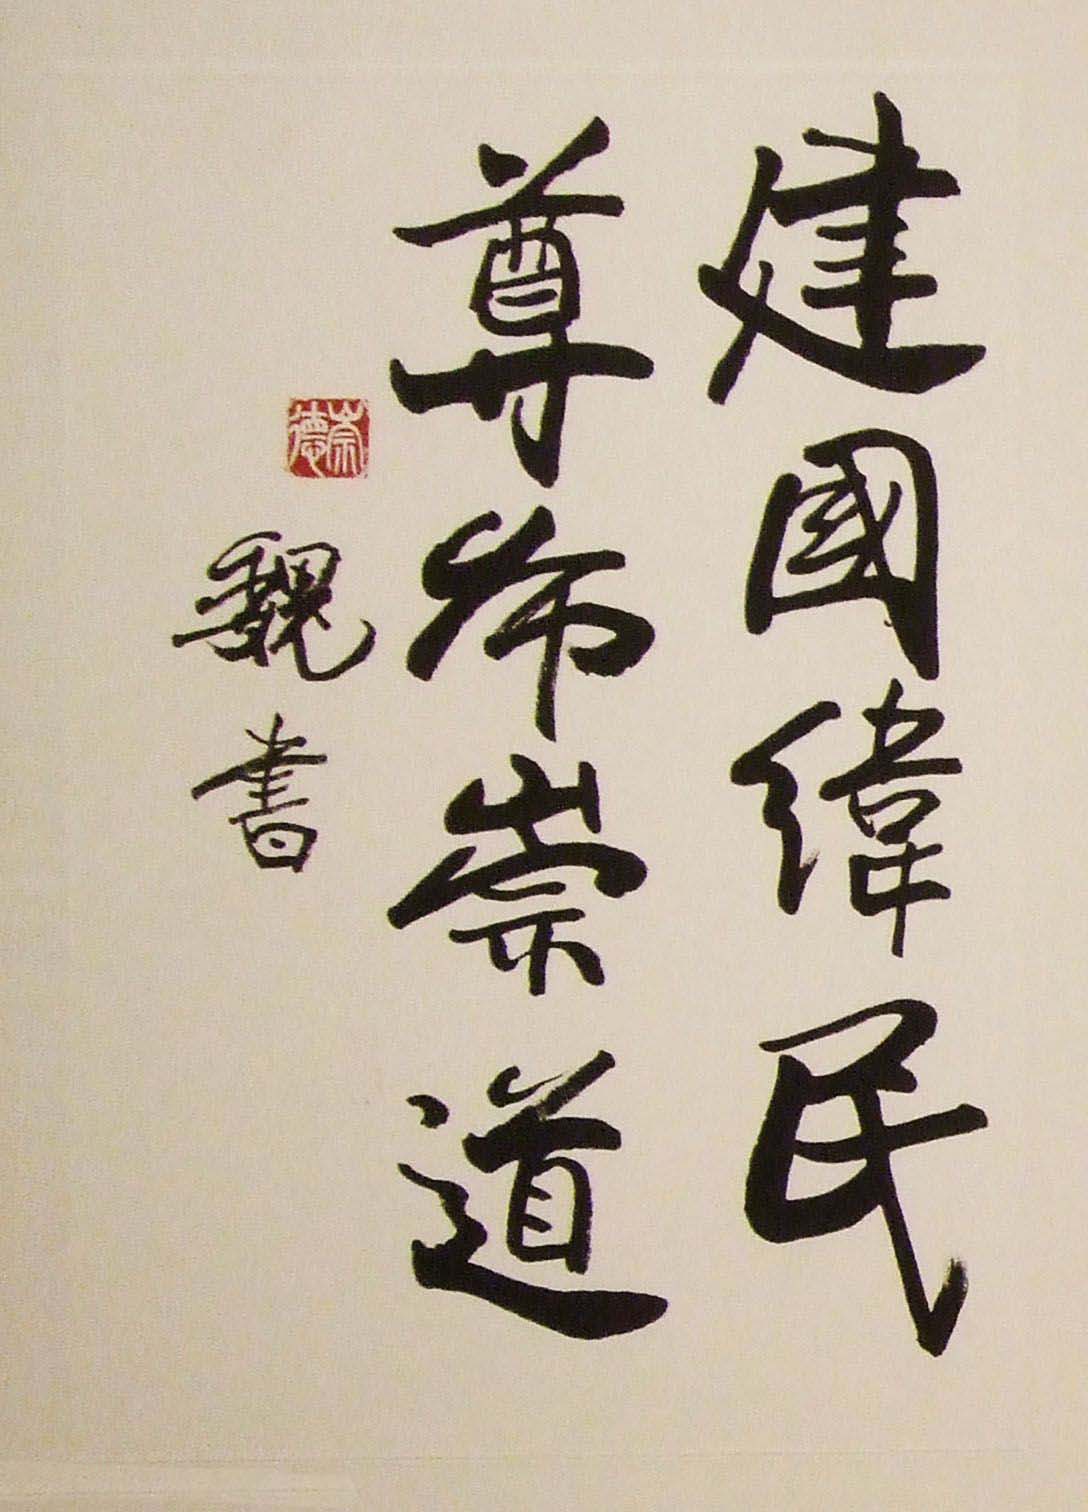 建國緯民
尊師崇道
魏書
崇德